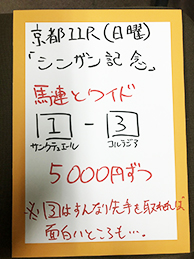 京都11R(日曜)
「シンザン記念」
馬連とワイド
1-3
サンクテュエール コルテジア
5000円ずつ
※3はすんなり先手を取れれば
面白いところも…。